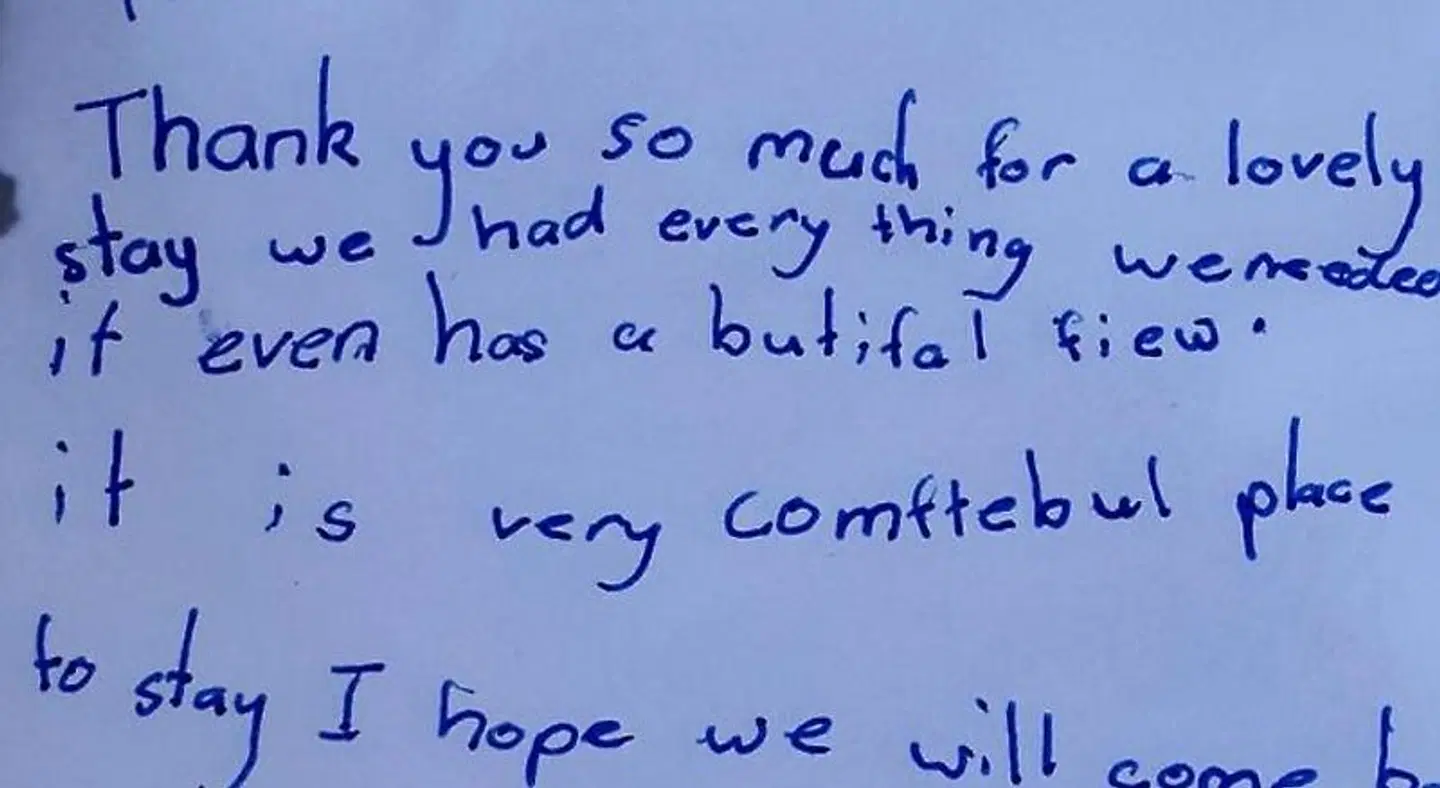 Thank you so much for a lovely
stay we had every thing we needed
it even has a butifal fiew.
it is very comftebul place
to stay I hope we will come